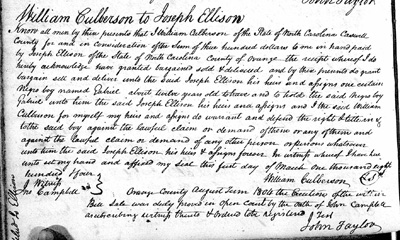 John Taylor
William Culberson to Joseph Ellison
Know all men by these presents that I William Culberson of the State of North Carolina Caswell
County for and in consideration of the Sum of three hundred dollars to me in hand paid
by Joseph Ellison of the State of North Carolina County of Orange the receipt whereof I do
hereby acknowledge have granted bargained sold & delivered and by these presents do grant
bargain sell and deliver unto the said Joseph Ellison his heirs and assigns one certain
Negro boy named Gabriel about twelve years old to have and to hold the said Negro boy
Gabriel unto him the said Joseph Ellison his heirs and assigns and I the said William
Culberson for myself my heirs and assigns do warrant and defend the right & title in &
to the said boy against the lawful claim or demand of them or any of them and
against the lawful claim or demand of any other person or persons whatever
unto him the said Joseph Ellison, his heirs & assigns forever. In witness whereof I have here
unto set my hand and affixed my seal this first day of March one thousand eight
hundred & four
William Culberson
A Witness
Jno Campbell
Orange County August Term 1804 the Execution of the within
Bill Sale was duly proved in open court by the oath of John Campbell
a subscribing witness thereto & ordered to be registered
Test
John Taylor